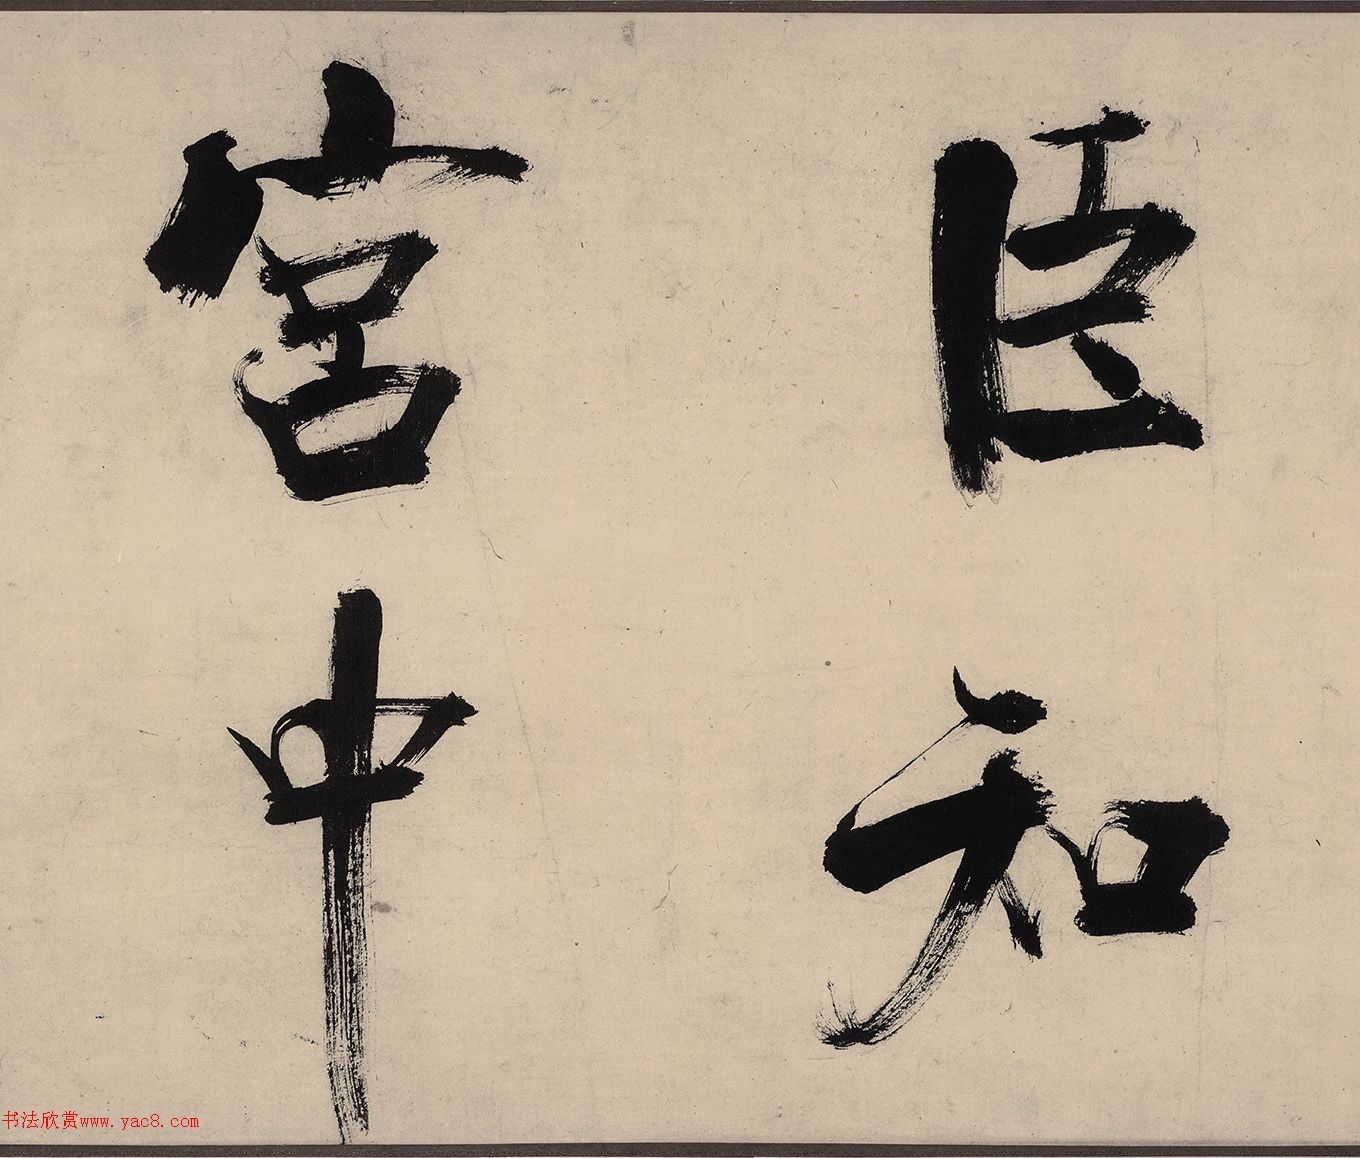 臣知
宮中
书法欣赏www.yac8.com